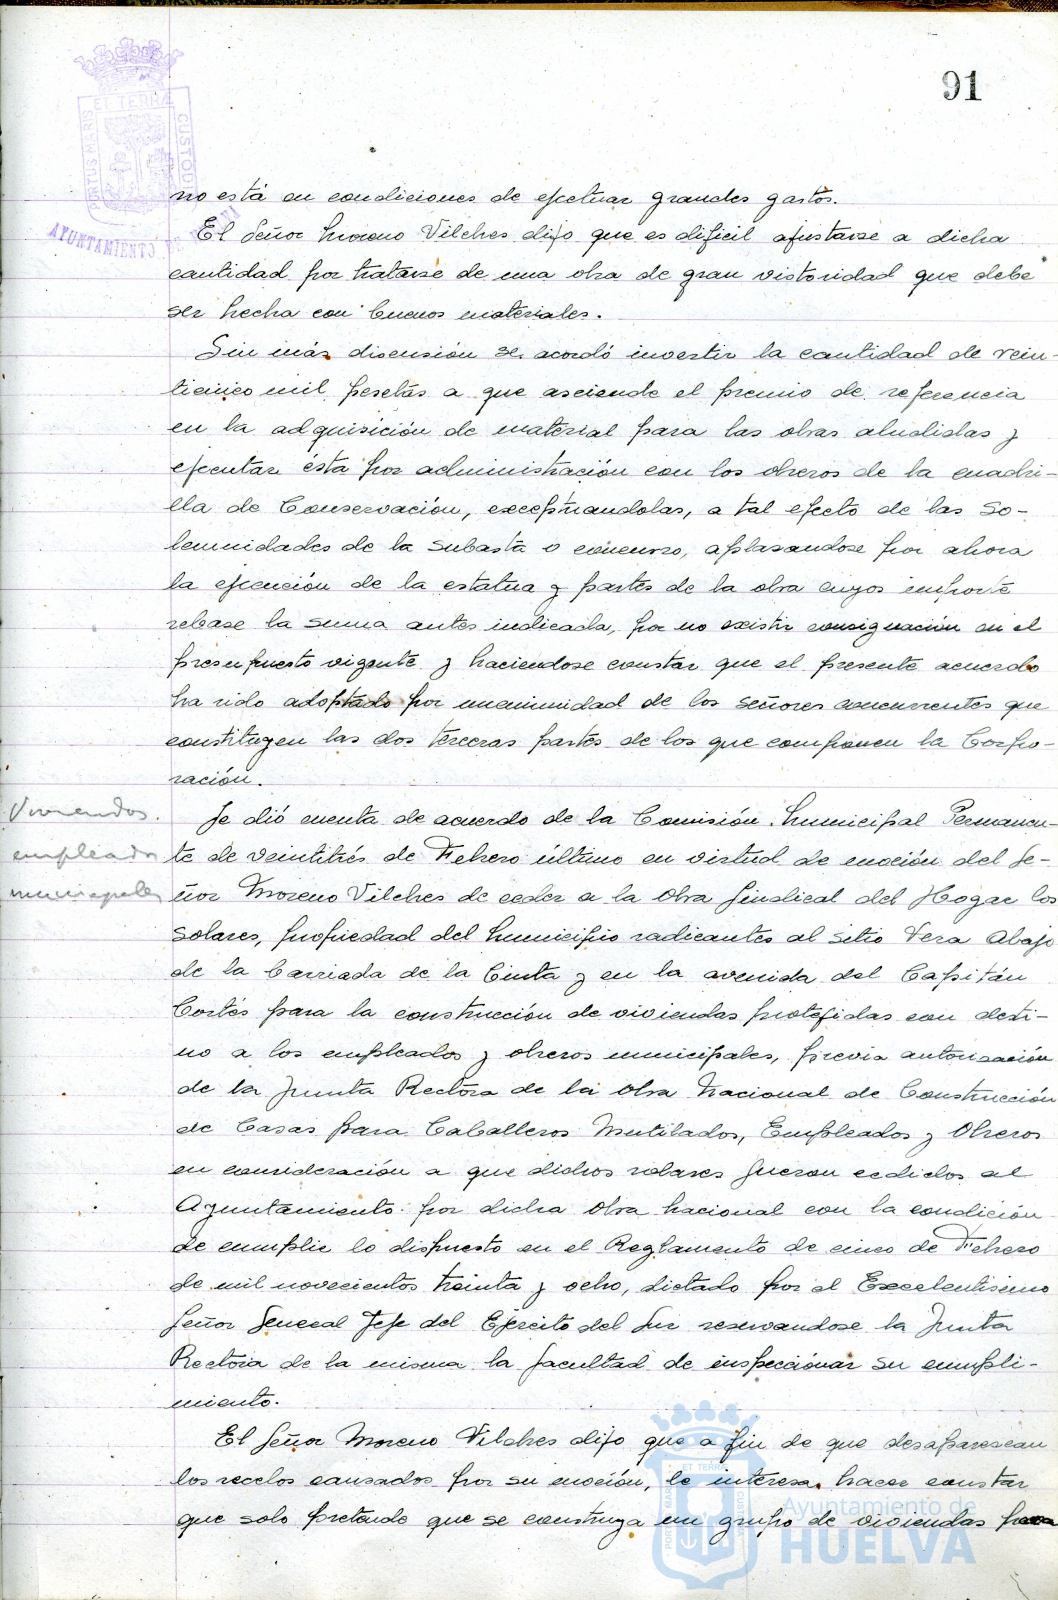 91
PORTUS MARIS ET TERRAE CUSTODIA
AYUNTAMIENTO DE
no está en condiciones de efectuar grandes gastos.
El Señor Moreno Vilches dijo que es dificil ajustarse a dicha
cantidad por tratarse de una obra de gran vistosidad que debe
ser hecha con buenos materiales.
Sin más discusión se acordó invertir la cantidad de vein-
ticinco mil pesetas a que asciende el premio de referencia
en la adquisición de material para las obras aludidas y
ejecutar ésta por administración con los obreros de la cuadri-
lla de Conservación, exceptuandolas, a tal efecto de las So-
lemnidades de la subasta o concurso, aplasandose por ahora
la ejecución de la estatua y partes de la obra cuyos importe
rebase la suma antes indicada, por no existir consignación en el
presupuesto vigente y haciendose constar que el presente acuerdo
ha sido adoptado por unanimidad de los señores concurrentes que
constituyen las dos terceras partes de los que componen la Corpo-
ración.
Viviendas.
empleados
municipales
Se dió cuenta de acuerdo de la Comisión Municipal Permanen-
te de veintitrés de Febrero último en virtud de moción del Se-
ñor Moreno Vilches de ceder a la Obra Sindical del Hogar los
solares, propiedad del Municipio radicantes al sitio Vera Abajo
de la barriada de la Cinta y en la avenida del Capitán
Cortés para la construcción de viviendas protegidas con desti-
no a los empleados y obreros municipales, previa autorización
de la Junta Rectora de la Obra Nacional de Construcción
de Casas para Caballeros Mutilados, Empleados y Obreros
en consideración a que dichos solares fueron cedidos al
Ayuntamiento por dicha Obra Nacional con la condición
de cumplir lo dispuesto en el Reglamento de cinco de Febrero
de mil novecientos treinta y ocho, dictado por el Excelentisimo
Señor General Jefe del Ejército del Sur reservandose la Junta
Rectora de la misma la facultad de inspeccionar su cumpli-
miento.
El Señor Moreno Vilches dijo que a fin de que desaparescan
los recelos causados por su moción, le interesa hacer constar
que solo pretende que se construya un grupo de viviendas para
Ayuntamiento de
HUELVA